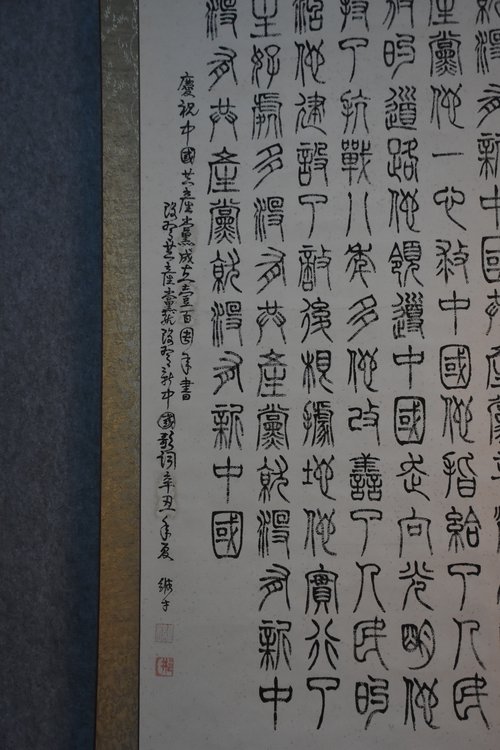 就沒有新中國共產黨
產黨他一心救中國他指給了人民
放的道路他領導中國走向光明他
持了抗戰八年多他改善了人民的
活他建設了敵後根據地他實行了
主好處多沒有共產黨就沒有新中
沒有共產黨就沒有新中國
慶祝中國共產黨成立壹百周年書
沒有共產黨就沒有新中國歌詞辛丑年夏